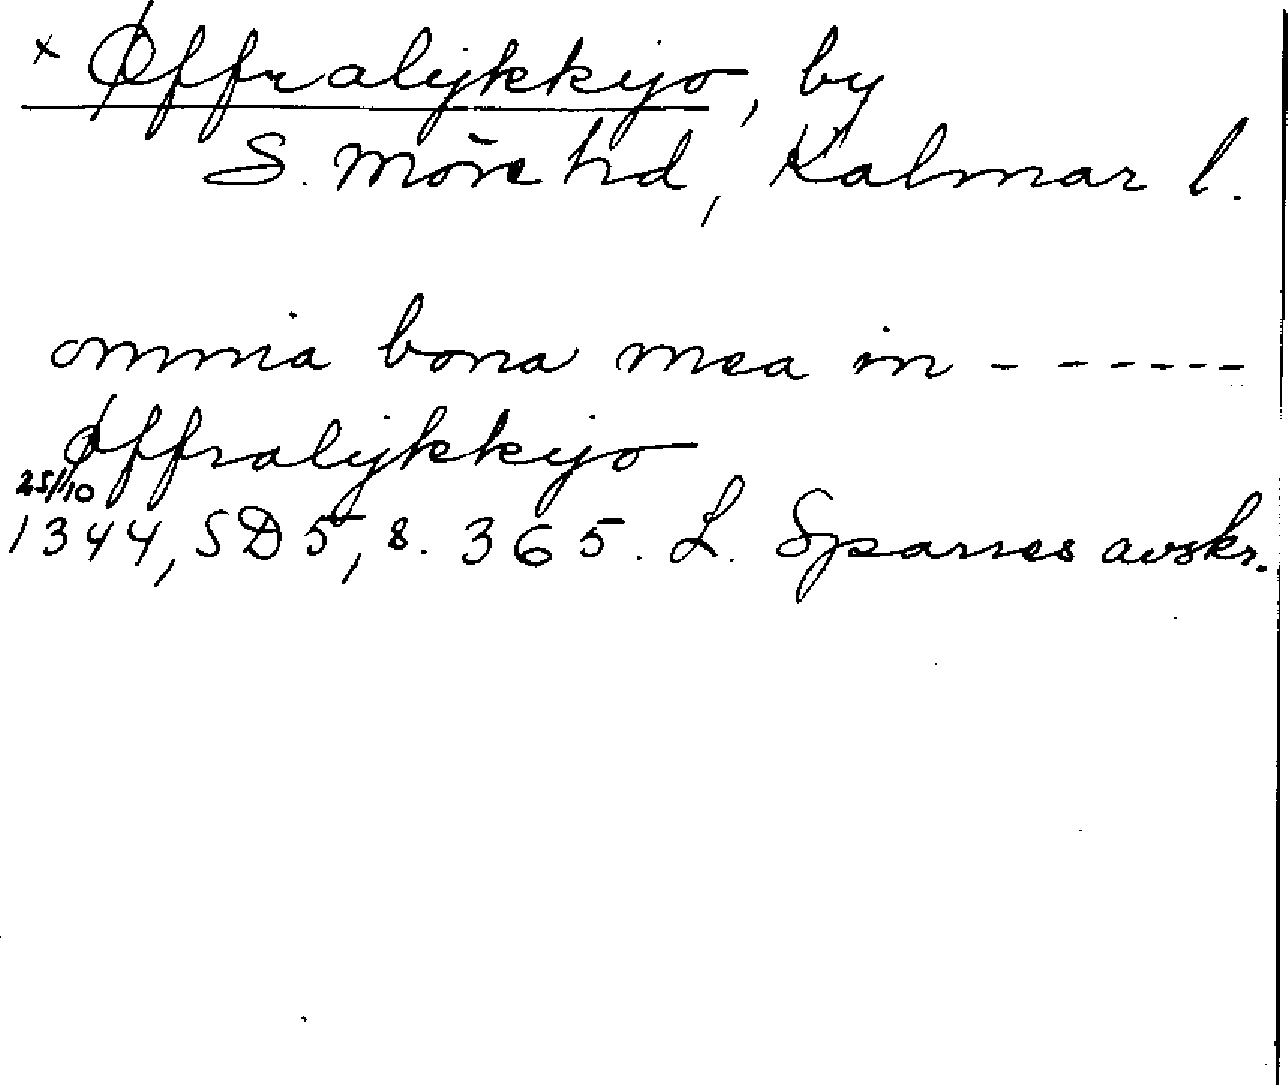 × Øffralijkkijo, by
S. Möre hd, Kalmar l.
omnia bona mea in - - - - - -
Øffralijkkijo
25/10
1344, SD 5, s. 365. L. Sparres avskr.